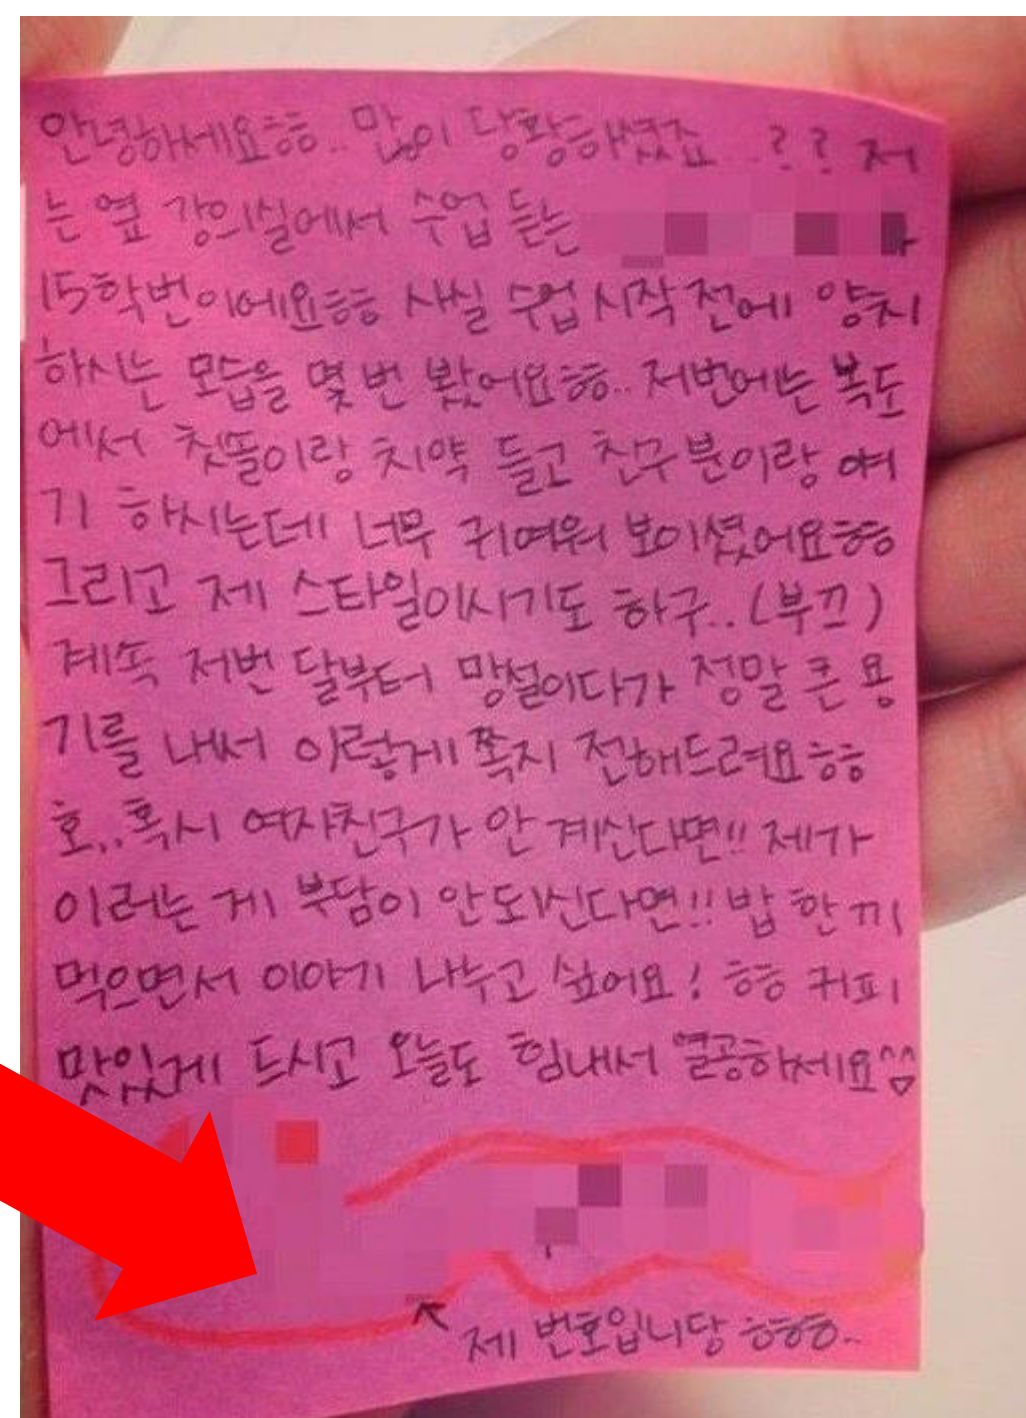 안녕하세요ㅎㅎ.. 많이 당황하셨죠..?? 저
는 옆 강의실에서 수업 듣는
15학번이에요ㅎㅎ 사실 수업 시작 전에 양치
하시는 모습을 몇 번 봤어요ㅎㅎ.. 저번에는 복도
에서 칫똘이랑 치약 들고 친구 분이랑 얘
기 하시는데 너무 귀여워 보이셨어요ㅎㅎ
그리고 제 스타일이시기도 하구..(부끄)
계속 저번 달부터 망설이다가 정말 큰 용
기를 내서 이렇게 쪽지 전해드려요ㅎㅎ
호..혹시 여자친구가 안 계신다면!! 제가
이러는 게 부담이 안되신다면!! 밥 한 끼
먹으면서 이야기 나누고 싶어요! ㅎㅎ 커피
맛있게 드시고 오늘도 힘내서 열공하세요^^
제 번호입니당 ㅎㅎㅎ..